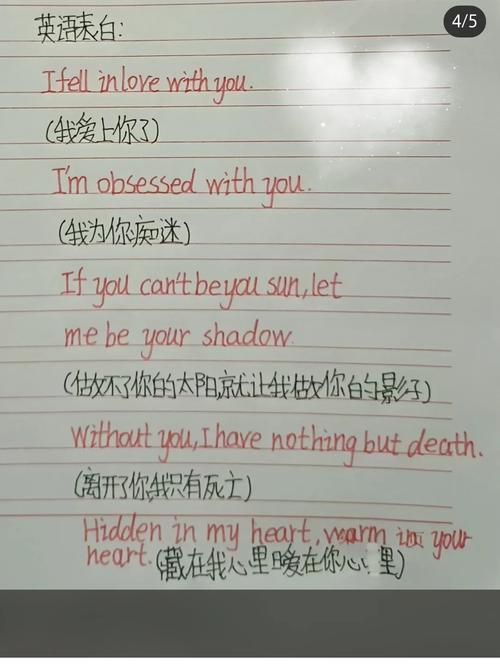 4/5
英语表白:
I fell in love with you.
(我爱上你了)
I'm obsessed with you.
(我为你痴迷)
If you can't be you sun, let
me be your shadow.
(做不了你的太阳,就让我做你的影子)
Without you, I have nothing but death.
(离开了你,我只有死亡)
Hidden in my heart, warm in your
heart. (藏在我心里暖在你心里)